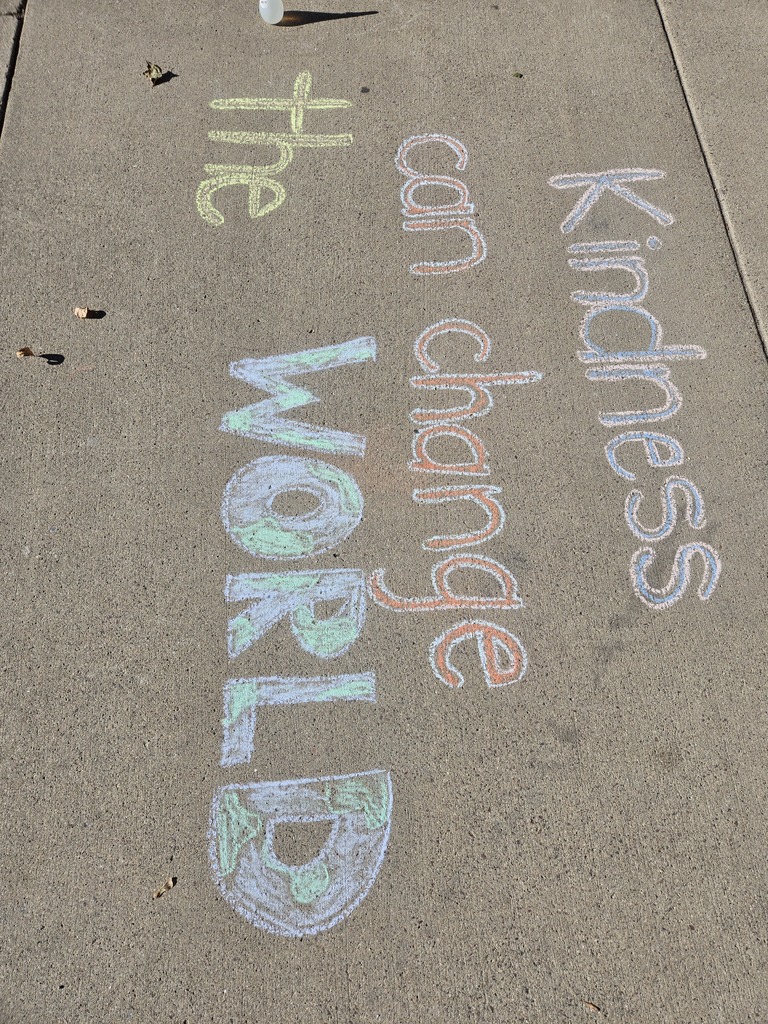 Kindness
can change
the WORLD